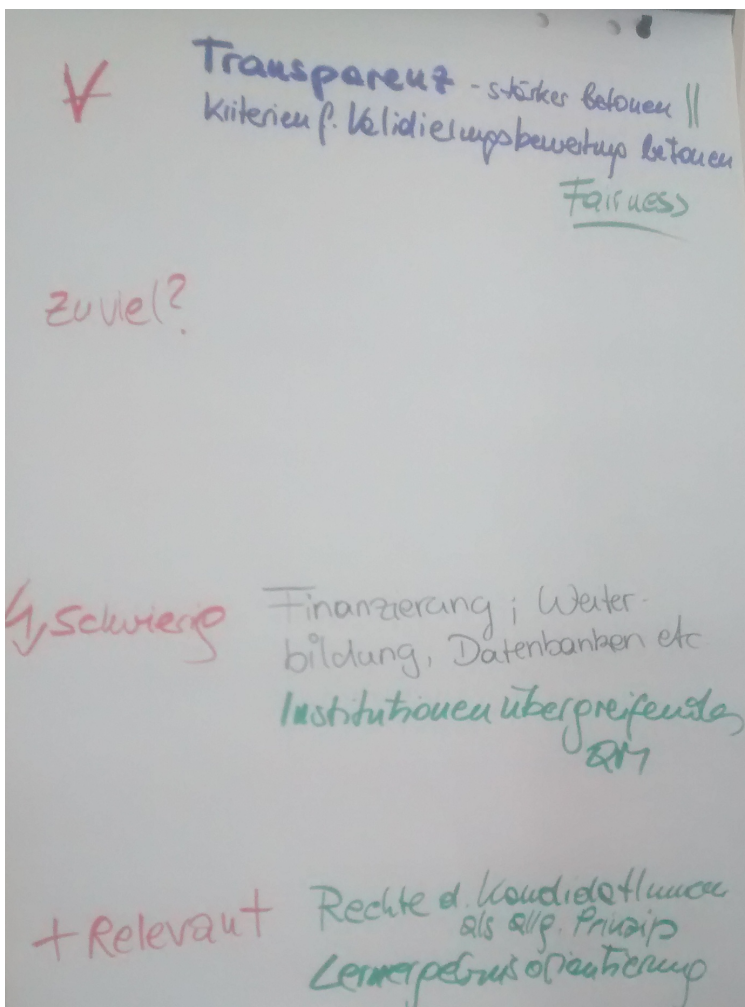 Transparenz - stärker betonen ||
Kriterien f. Validierungsbewertung betonen
Fairness
zu viel?
Schwierig
Finanzierung; Weiter-
bildung, Datenbanken etc
Institutionen übergreifendes
QM
+ Relevant
Rechte d. KandidatInnen
als allg. Prinzip
Lernergebnisorientierung